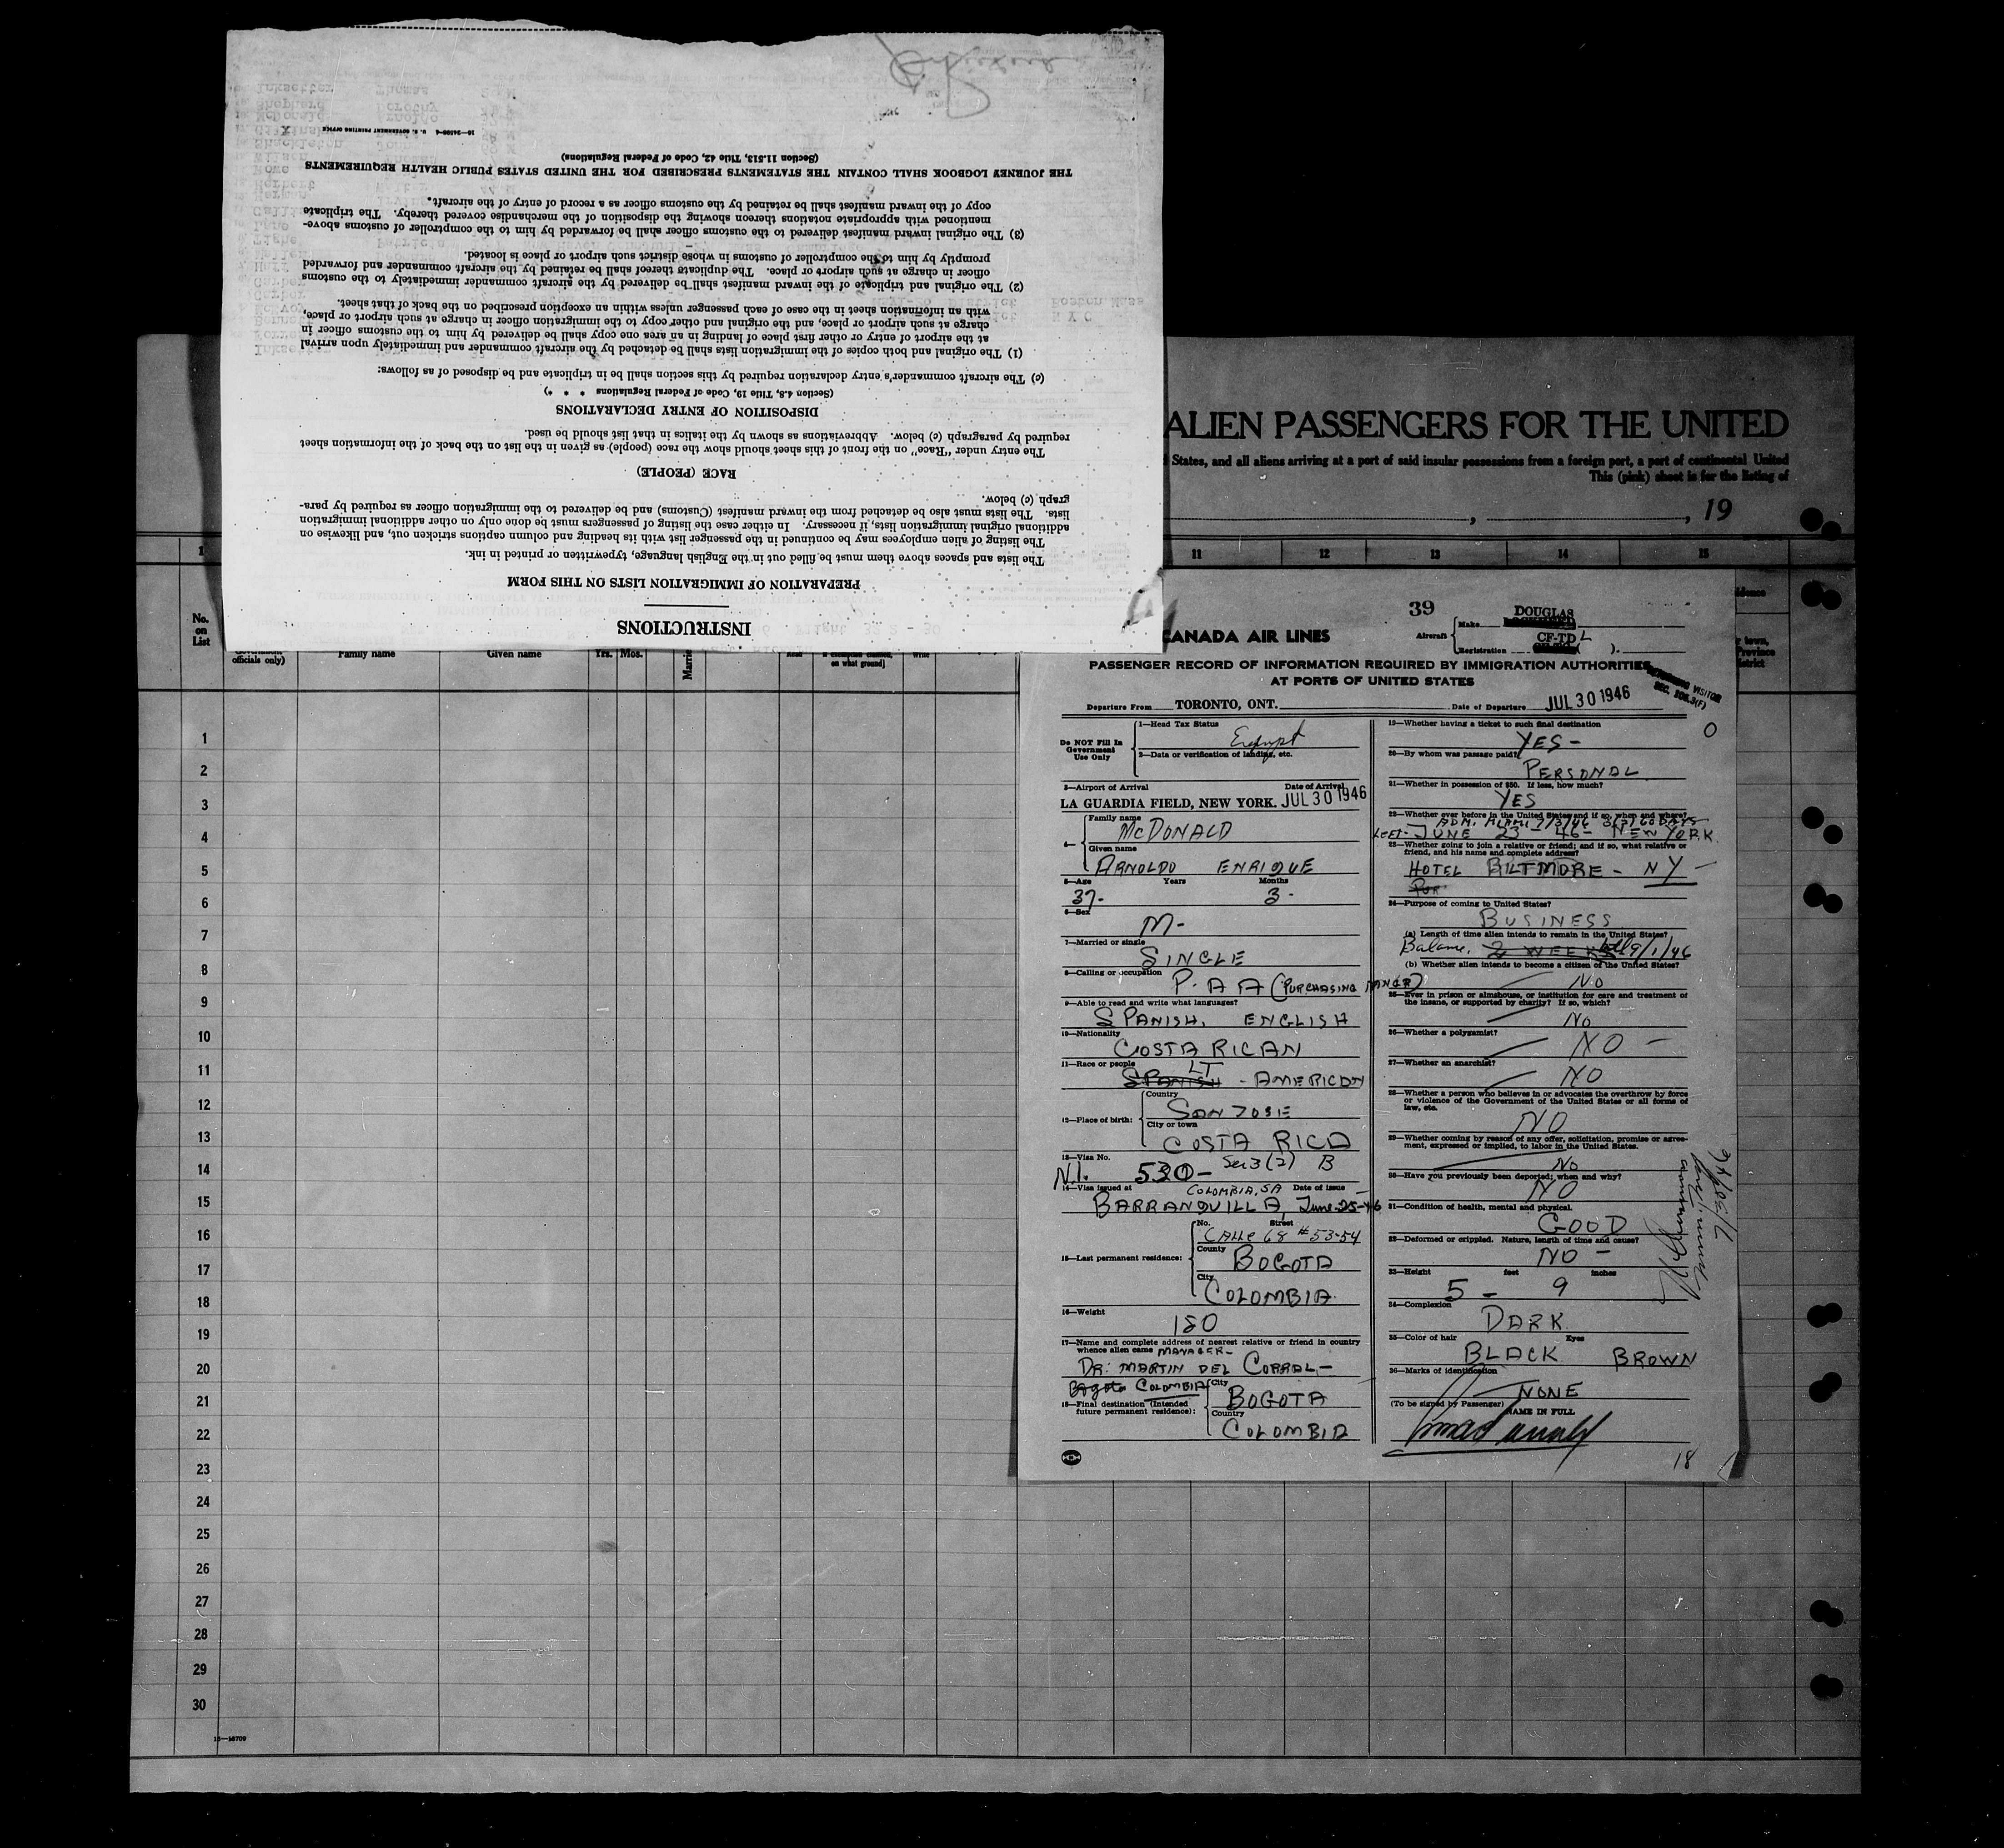 INSTRUCTIONS
PREPARATION OF IMMIGRATION LISTS ON THIS FORM
The lists and spaces above them must be filled out in the English language, typewritten or printed in ink.
The listing of alien employees may be continued in the passenger list with its heading and column captions stricken out, and likewise on
additional original immigration lists, if necessary. In either case the listing of passengers must be done only on other additional immigration
lists. The lists must also be detached from the inward manifest (Customs) and be delivered to the immigration officer as required by para-
graph (c) below.
RACE (PEOPLE)
The entry under "Race" on the front of this sheet should show the race (people) as given in the list on the back of the information sheet
required by paragraph (c) below. Abbreviations as shown by the italics in that list should be used.
DISPOSITION OF ENTRY DECLARATIONS
(Section 4.8, Title 19, Code of Federal Regulations * * *)
(c) The aircraft commander's entry declaration required by this section shall be in triplicate and be disposed of as follows:
(1) The original and both copies of the immigration lists shall be detached by the aircraft commander and immediately upon arrival
at the airport of entry or other first place of landing in an area one copy shall be delivered by him to the customs officer in
charge at such airport or place, and the original and other copy to the immigration officer in charge at such airport or place,
with an information sheet in the case of each passenger unless within an exception prescribed on the back of that sheet.
(2) The original and triplicate of the inward manifest shall be delivered by the aircraft commander immediately to the customs
officer in charge at such airport or place. The duplicate thereof shall be retained by the aircraft commander and forwarded
promptly by him to the comptroller of customs in whose district such airport or place is located.
(3) The original inward manifest delivered to the customs officer shall be forwarded by him to the comptroller of customs above-
mentioned with appropriate notations thereon showing the disposition of the merchandise covered thereby. The triplicate
copy of the inward manifest shall be retained by the customs officer as a record of entry of the aircraft.
THE JOURNEY LOGBOOK SHALL CONTAIN THE STATEMENTS PRESCRIBED FOR THE UNITED STATES PUBLIC HEALTH REQUIREMENTS
(Section 11.513, Title 42, Code of Federal Regulations)
U. S. GOVERNMENT PRINTING OFFICE
ALIEN PASSENGERS FOR THE UNITED
States, and all aliens arriving at a port of said insular possessions from a foreign port, a port of continental United
This (pink) sheet is for the listing of
, , 19
11 12 13 14 15
No. on List
officials only) Family name Given name Yrs. Mos.
on what ground]
1
2
3
4
5
6
7
8
9
10
11
12
13
14
15
16
17
18
19
20
21
22
23
24
25
26
27
28
29
30
39
CANADA AIR LINES
Aircraft Make DOUGLAS
Registration CF-TDL ( ).
PASSENGER RECORD OF INFORMATION REQUIRED BY IMMIGRATION AUTHORITIES
AT PORTS OF UNITED STATES
VISITOR
Departure From TORONTO, ONT. Date of Departure JUL 30 1946
Do NOT Fill In Government Use Only
1—Head Tax Status
Exempt
2—Data or verification of landing, etc.
3—Airport of Arrival Date of Arrival
LA GUARDIA FIELD, NEW YORK. JUL 30 1946
4—
Family name
McDONALD
Given name
ARNOLDO ENRIQUE
5—Age Years Months
37- 3-
6—Sex
M-
7—Married or single
SINGLE
8—Calling or occupation
P. A A (PURCHASING MANGR)
9—Able to read and write what languages?
SPANISH, ENGLISH
10—Nationality
COSTA RICAN
11—Race or people
LT
SPANISH - AMERICAN
12—Place of birth:
Country
SAN JOSE
City or town
COSTA RICA
13—Visa No.
N.I. 530- Sec 3(2) B
14—Visa issued at COLOMBIA, SA Date of issue
BARRANQUILLA, June-25-46
15—Last permanent residence:
No. Street
CALLE 68 #53-54
County
BOGOTA
City
COLOMBIA.
16—Weight
180
17—Name and complete address of nearest relative or friend in country
whence alien came MANAGER-
DR: MARTIN DEL CORRAL-
Bogota COLOMBIA
18—Final destination (Intended
future permanent residence):
City
BOGOTA
Country
COLOMBIA
19—Whether having a ticket to such final destination
YES-
20—By whom was passage paid?
PERSONAL
21—Whether in possession of $50. If less, how much?
YES
22—Whether ever before in the United States and if so, when and where?
ADM. MIAMI 7/3/46 3(2) 60 DAYS
LEFT- JUNE 23 - 46- NEW YORK
23—Whether going to join a relative or friend; and if so, what relative or
friend, and his name and complete address?
HOTEL BILTMORE - NY -
24—Purpose of coming to United States?
BUSINESS
(a) Length of time alien intends to remain in the United States?
Balance 2 WEEKS till 9/1/46
(b) Whether alien intends to become a citizen of the United States?
No
25—Ever in prison or almshouse, or institution for care and treatment of
the insane, or supported by charity? If so, which?
No
26—Whether a polygamist?
NO -
27—Whether an anarchist?
NO
28—Whether a person who believes in or advocates the overthrow by force
or violence of the Government of the United States or all forms of
law, etc.
NO
29—Whether coming by reason of any offer, solicitation, promise or agree-
ment, expressed or implied, to labor in the United States.
No
30—Have you previously been deported; when and why?
NO
31—Condition of health, mental and physical.
GOOD
32—Deformed or crippled. Nature, length of time and cause?
NO -
33—Height feet inches
5 - 9
34—Complexion
DARK
35—Color of hair Eyes
BLACK BROWN
36—Marks of identification
NONE
(To be signed by Passenger) NAME IN FULL
18
7/30/46
16—18709